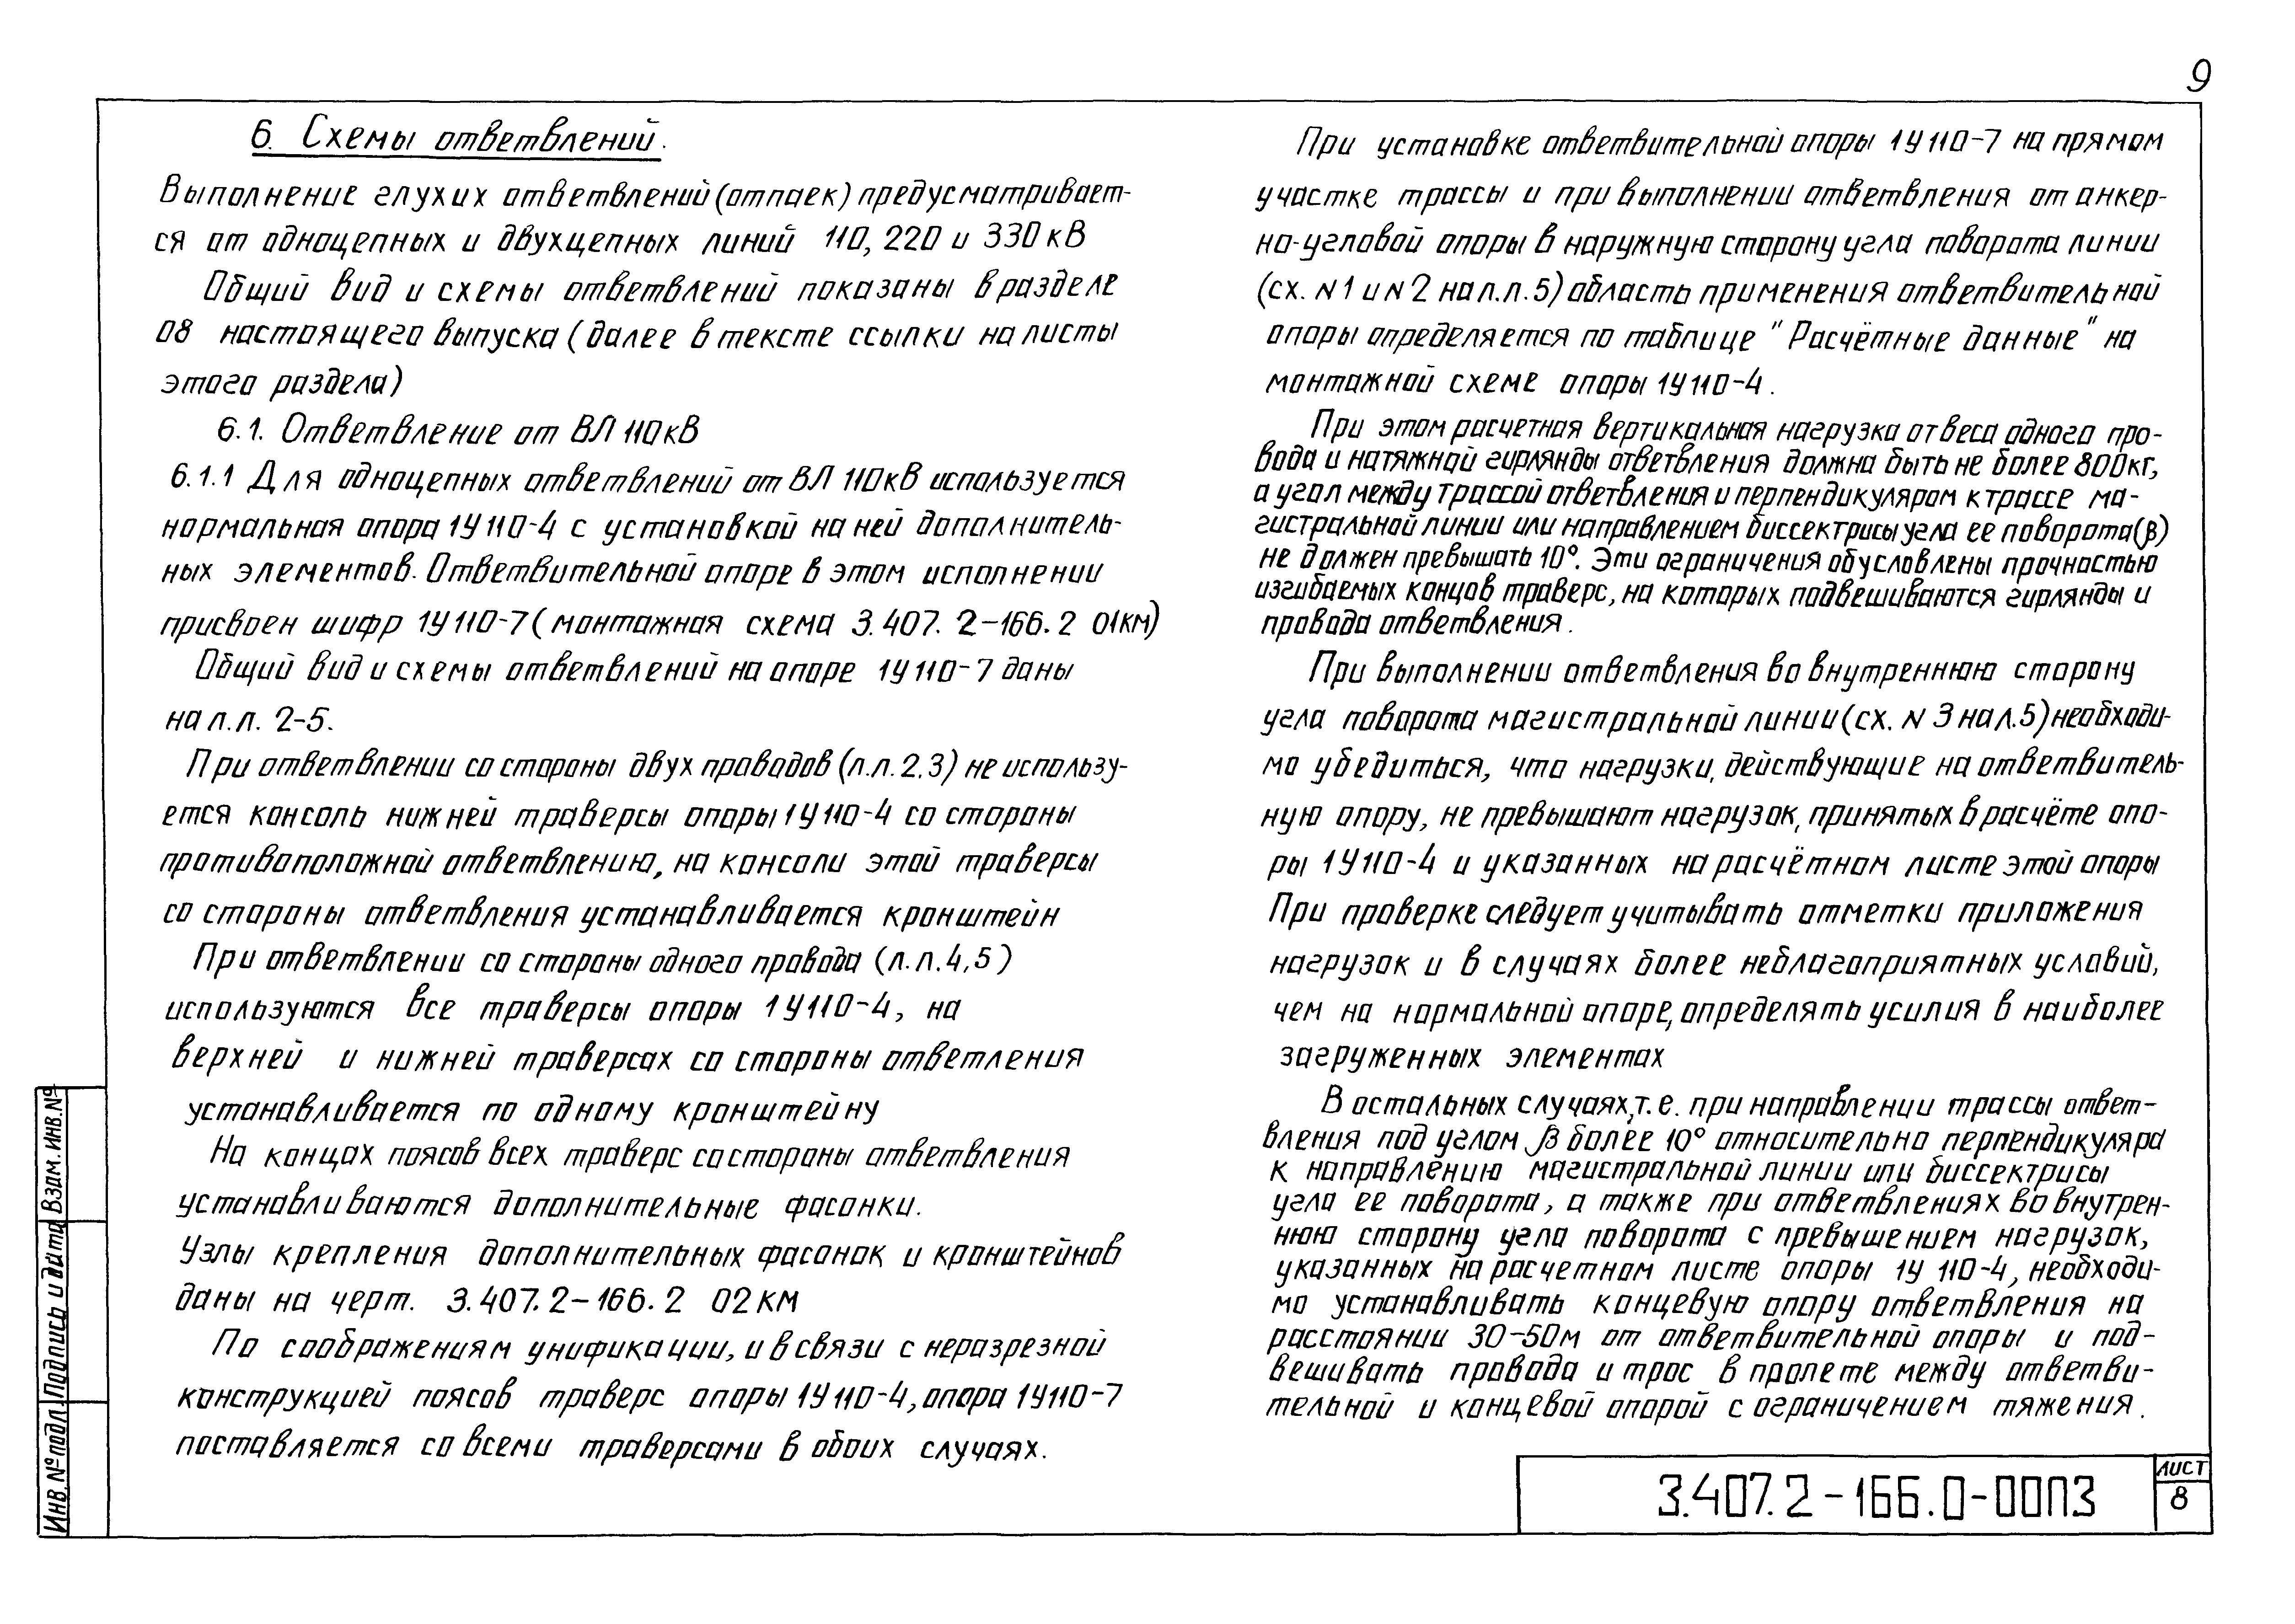 9
6. Схемы ответвлений.
Выполнение глухих ответвлений (отпаек) предусматривает-
ся от одноцепных и двухцепных линий 110, 220 и 330 кВ
Общий вид и схемы ответвлений показаны в разделе
08 настоящего выпуска (далее в тексте ссылки на листы
этого раздела)
6.1. Ответвление от ВЛ 110кВ
6.1.1 Для одноцепных ответвлений от ВЛ 110кВ используется
нормальная опора 1У110-4 с установкой на ней дополнитель-
ных элементов. Ответвительной опоре в этом исполнении
присвоен шифр 1У110-7 (монтажная схема 3.407.2-166.2 01КМ)
Общий вид и схемы ответвлений на опоре 1У110-7 даны
на л.л. 2-5.
При ответвлении со стороны двух проводов (л.л. 2,3) не использу-
ется консоль нижней траверсы опоры 1У110-4 со стороны
противоположной ответвлению, на консоли этой траверсы
со стороны ответвления устанавливается кронштейн
При ответвлении со стороны одного провода (л.л. 4,5)
используются все траверсы опоры 1У110-4, на
верхней и нижней траверсах со стороны ответления
устанавливается по одному кронштейну
На концах поясов всех траверс со стороны ответвления
устанавливаются дополнительные фасонки.
Узлы крепления дополнительных фасонок и кронштейнов
даны на черт. 3.407.2-166.2 02КМ
По соображениям унификации, и в связи с неразрезной
конструкцией поясов траверс опоры 1У110-4, опора 1У110-7
поставляется со всеми траверсами в обоих случаях.
При установке ответвительной опоры 1У110-7 на прямом
участке трассы и при выполнении ответвления от анкер-
но-угловой опоры в наружную сторону угла поворота линии
(сх. N1 и N2 на л.л. 5) область применения ответвительной
опоры определяется по таблице "Расчётные данные" на
монтажной схеме опоры 1У110-4.
При этом расчетная вертикальная нагрузка от веса одного про-
вода и натяжной гирлянды ответвления должна быть не более 800кг,
а угол между трассой ответвления и перпендикуляром к трассе ма-
гистральной линии или направлением биссектрисы угла ее поворота (β)
не должен превышать 10°. Эти ограничения обусловлены прочностью
изгибаемых концов траверс, на которых подвешиваются гирлянды и
провода ответвления.
При выполнении ответвления во внутреннюю сторону
угла поворота магистральной линии (сх. N 3 на л.5) необходи-
мо убедиться, что нагрузки, действующие на ответвитель-
ную опору, не превышают нагрузок, принятых в расчёте опо-
ры 1У110-4 и указанных на расчётном листе этой опоры
При проверке следует учитывать отметки приложения
нагрузок и в случаях более неблагоприятных условий,
чем на нормальной опоре, определять усилия в наиболее
загруженных элементах
В остальных случаях, т.е. при направлении трассы ответ-
вления под углом β более 10° относительно перпендикуляра
к направлению магистральной линии или биссектрисы
угла ее поворота, а также при ответвлениях во внутрен-
нюю сторону угла поворота с превышением нагрузок,
указанных на расчетном листе опоры 1У 110-4, необходи-
мо устанавливать концевую опору ответвления на
расстоянии 30-50м от ответвительной опоры и под-
вешивать провода и трос в пролете между ответви-
тельной и концевой опорой с ограничением тяжения.
Взам. инв. №
Подпись и дата
Инв. № подл.
3.407.2-166.0-00ПЗ
лист
8